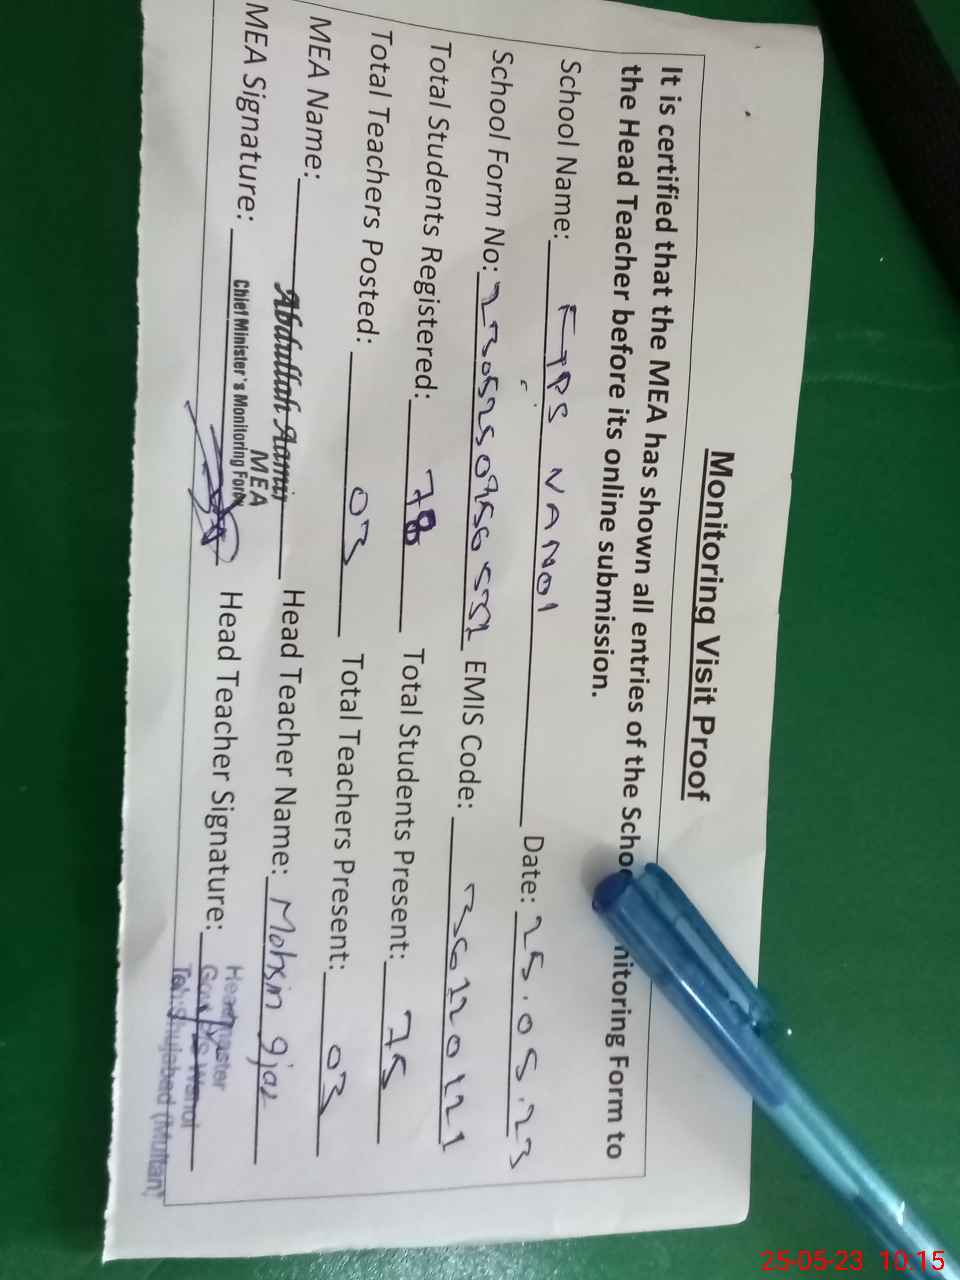 Monitoring Visit Proof
It is certified that the MEA has shown all entries of the Schoo nitoring Form to
the Head Teacher before its online submission.
School Name: GPS VANOI Date: 25.05.23
School Form No: EMIS Code: 36220121
Total Students Registered: 78 Total Students Present: 75
Total Teachers Posted: 03 Total Teachers Present: 03
MEA Name: Abdullah Aamir Head Teacher Name: Mohsin Ijaz
MEA
MEA Signature: Chief Minister's Monitoring Force Head Teacher Signature: Headmaster
Wanoi
Teh: Shujabad (Multan)
25-05-23 10.15